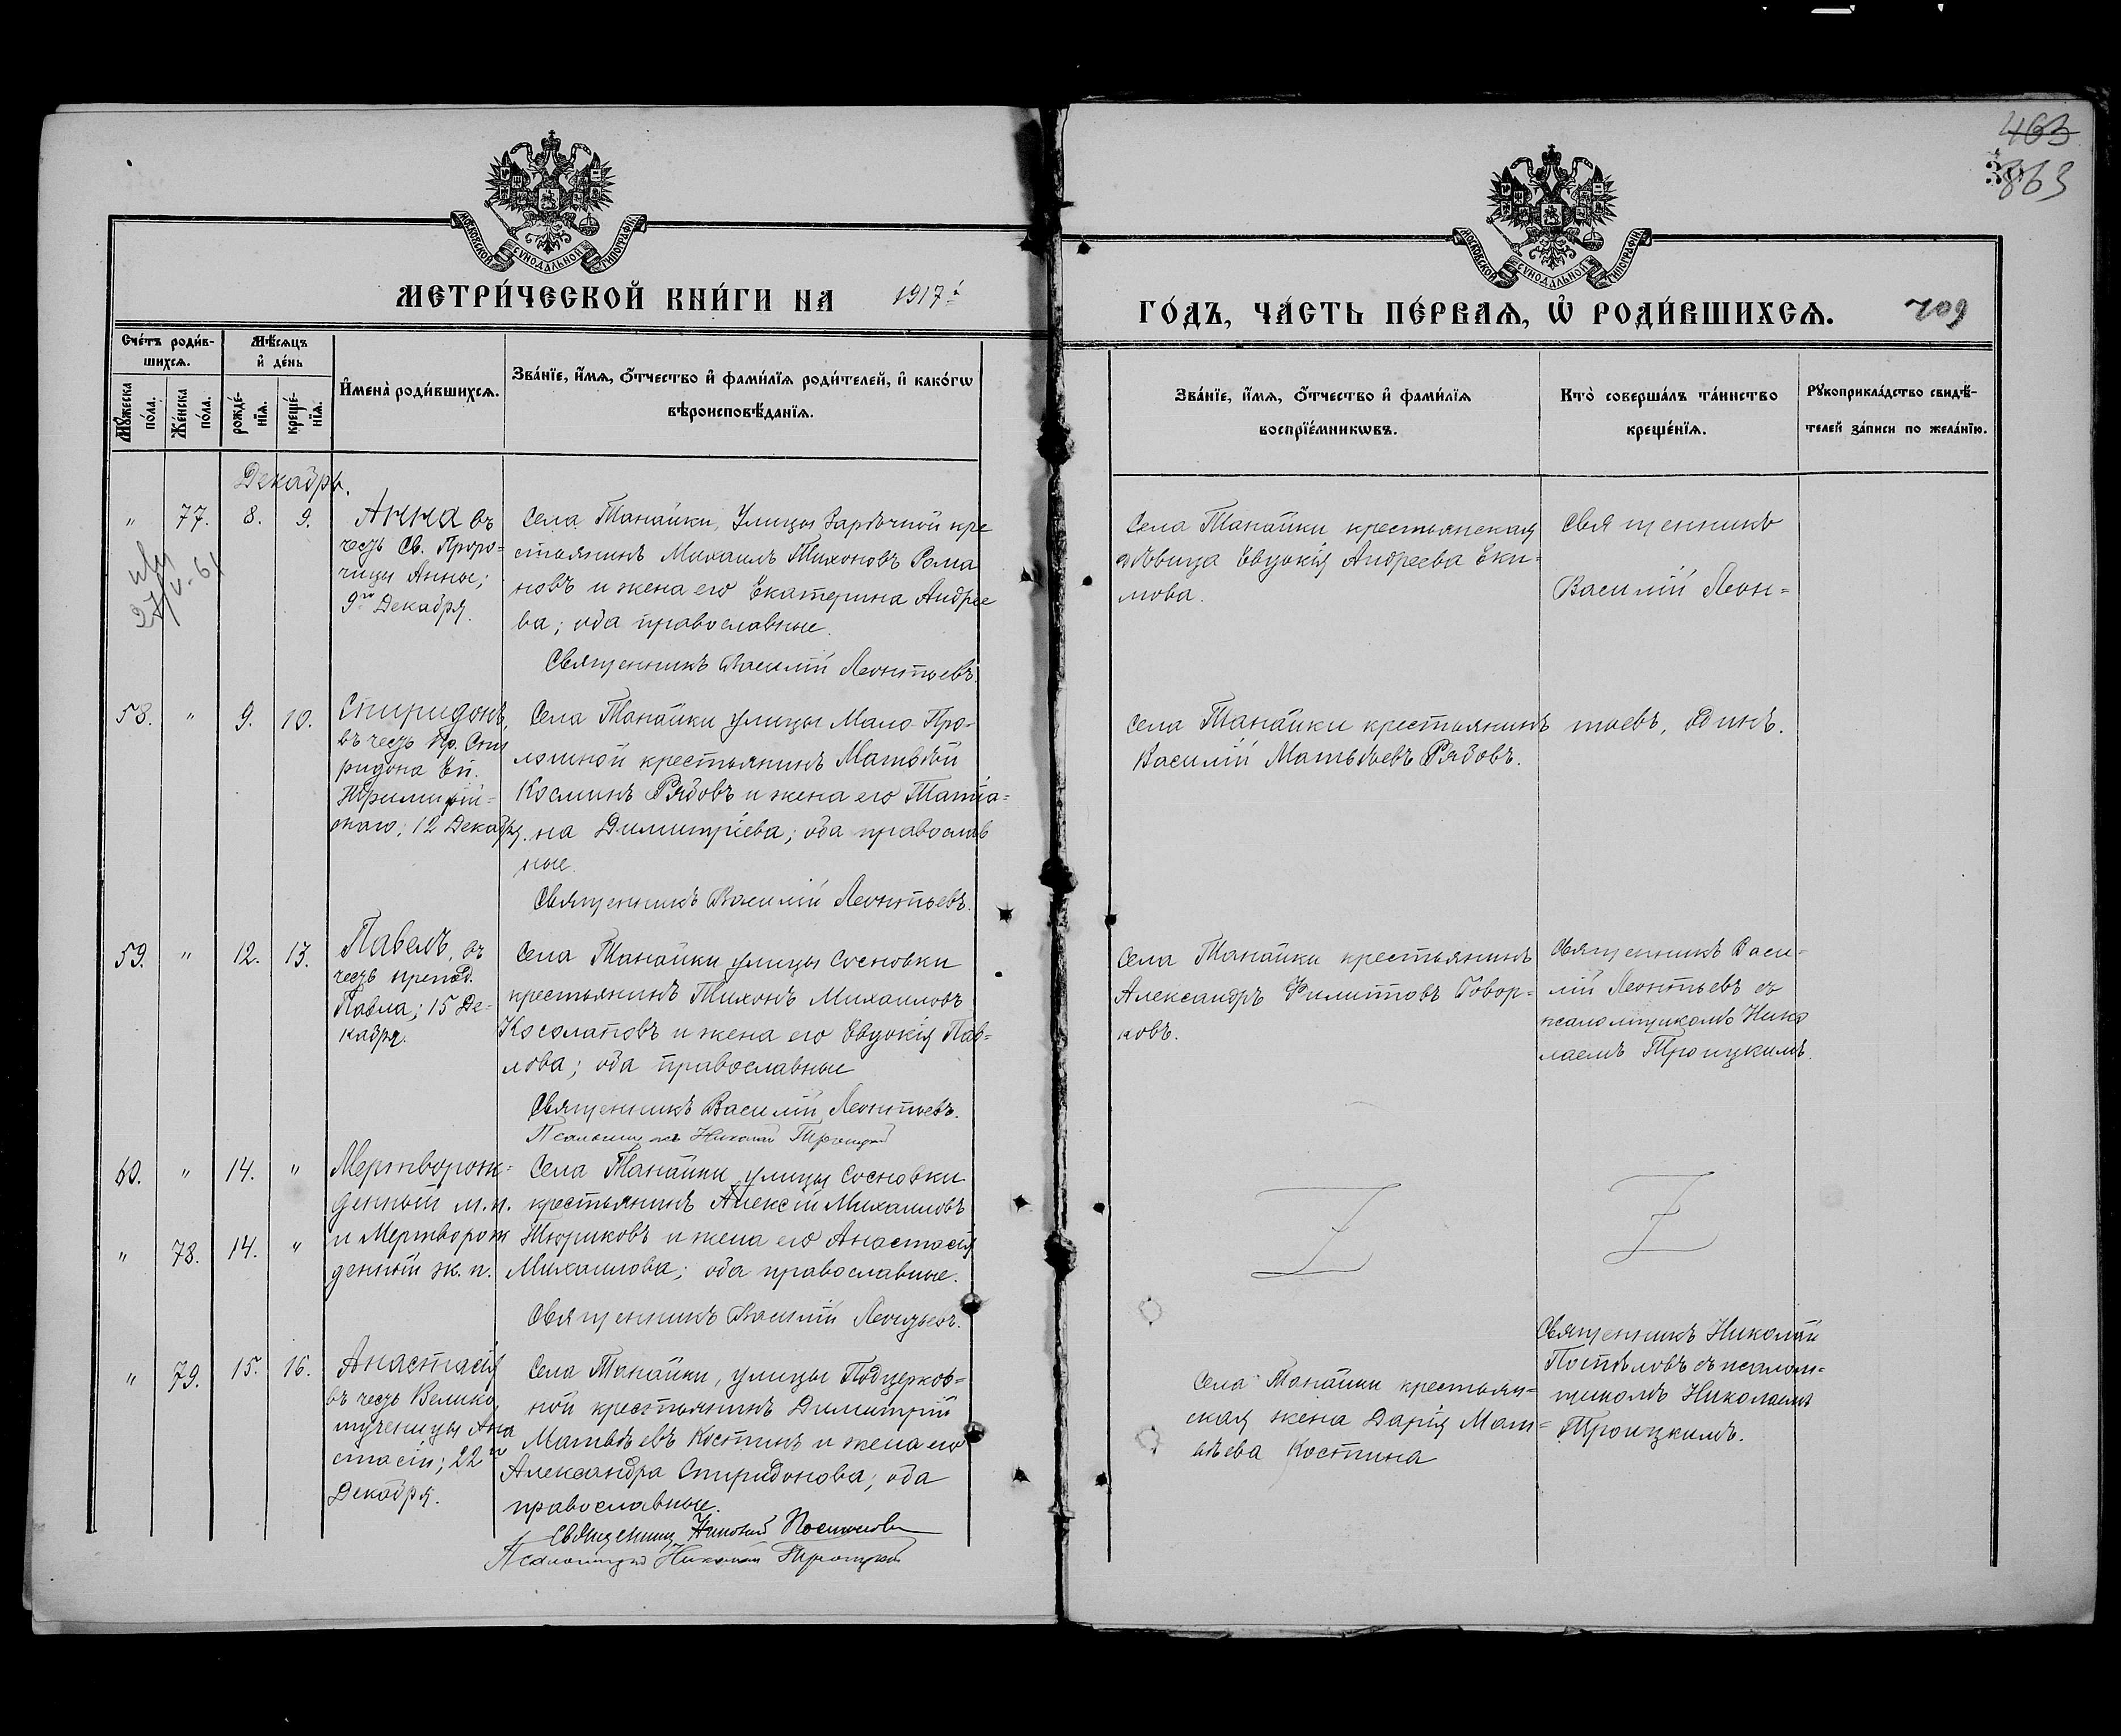 463
863
МОСКОВСКОЙ СУНОДАЛЬНОЙ ТИПОГРАФІИ
МОСКОВСКОЙ СУНОДАЛЬНОЙ ТИПОГРАФІИ
МЕТРИ́ЧЕСКОЙ КНИ́ГИ НА 1917 й
ГО́ДЪ, ЧА́СТЬ ПЕ́РВАѦ, Ѡ҆ РОДИ́ВШИХСѦ. 709
Сче́тъ роди́в-
шихсѧ.
Мꙋ́жеска по́ла.
Же́нска по́ла.
Мѣ́сѧцъ
и҆ де́нь
рожде́-
нїѧ.
креще́-
нїѧ.
И҆мена̀ роди́вшихсѧ.
Зва́нїе, и҆́мѧ, ѻ҆́тчество и҆ фами́лїѧ роди́телей, и҆ како́гѡ
вѣроисповѣ́данїѧ.
Зва́нїе, и҆́мѧ, ѻ҆́тчество и҆ фами́лїѧ
воспрїе́мникѡвъ.
Кто̀ соверша́лъ та́инство
креще́нїѧ.
Рꙋкоприкла́дство свидѣ́-
телей за́писи по жела́нїю.
Декабрь.
" 77. 8. 9.
27/V-61
Анна въ
честь Св. Проро-
чицы Анны;
9го Декабря.
Села Танайки, Улицы Зарѣчной кре
стьянинъ Михаилъ Тихоновъ Рома
новъ и жена его Екатерина Андрее
ва; оба православные.
Священникъ Василій Леонтьевъ.
Села Танайки крестьянская
дѣвица Евдокія Андреева Еки-
мова.
Священникъ
Василій Леон-
58. " 9. 10.
Спиридонъ,
въ честь Пр. Спи
ридона Еп.
Тримифій-
скаго; 12 Декабря.
Села Танайки улицы Мало Про-
ломной крестьянинъ Матвѣй
Косминъ Рябовъ и жена его Татіа-
на Димитріева; оба православ
ные.
Священникъ Василій Леонтьевъ.
Села Танайки крестьянинъ
Василій Матвѣевъ Рябовъ.
тьевъ, одинъ.
59. " 12. 13.
Павелъ, въ
честь препод.
Павла; 15 Де-
кабря.
Села Танайки улицы Сосновки
крестьянинъ Тихонъ Михаиловъ
Косолаповъ и жена его Евдокія Пав-
лова; оба православные
Священникъ Василій Леонтьевъ.
Псаломщикъ Николай Троицкій
Села Танайки крестьянинъ
Александръ Филипповъ Говор-
ковъ.
Священникъ Васи-
лій Леонтьевъ съ
псаломщикомъ Нико
лаемъ Троицкимъ.
60. " 14. "
Мертворож-
денный м.п.
" 78. 14. "
и Мертворож
денный ж. п.
Села Танайки улицы Сосновки
крестьянинъ Алексій Михаиловъ
Тюриковъ и жена его Анастасія
Михаилова; оба православные.
Священникъ Василій Леонтьевъ.
" 79. 15. 16.
Анастасія
въ честь Велико
мученицы Ана
стасіи; 22го
Декабря.
Села Танайки, улицы Подцерков-
ной крестьянинъ Димитрій
Матвѣевъ Костинъ и жена его
Александра Спиридонова; оба
православные.
Священникъ Николай Поспѣловъ
Псаломщикъ Николай Троицкій
Села Танайки крестьян-
ская жена Дарія Мат-
вѣева Костина
Священникъ Николай
Поспѣловъ съ псалом-
щикомъ Николаемъ
Троицкимъ.